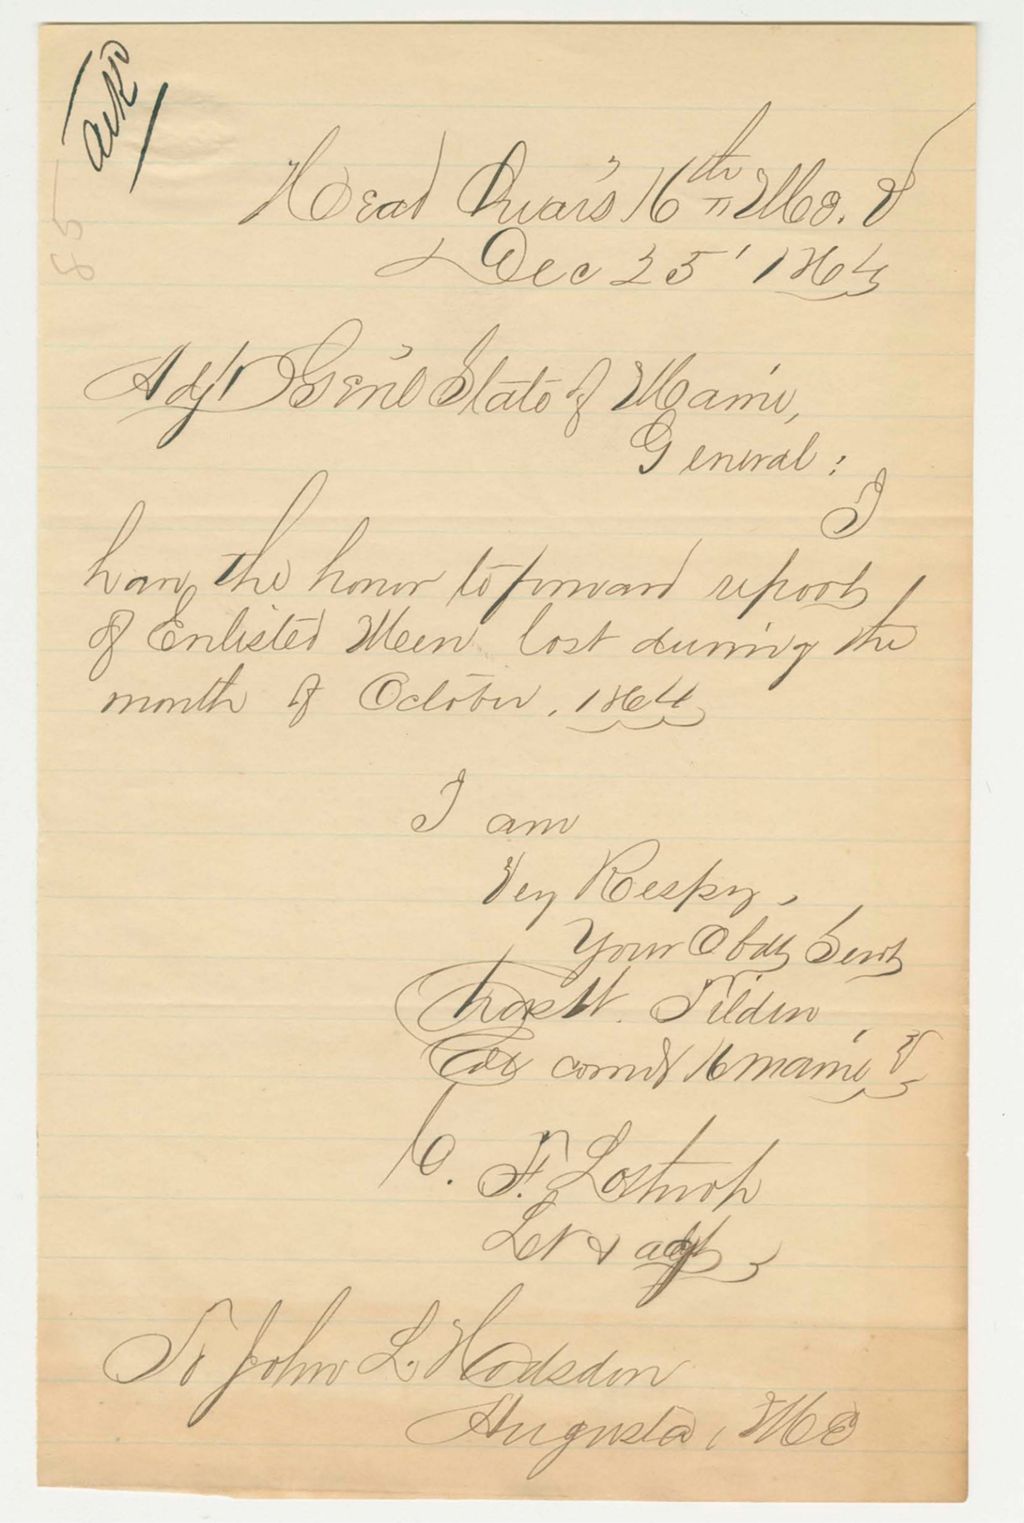 ack'd
85
Head Quar's 16th Me. V
Dec 25' 1864
Adj't Gen'l State of Maine,
General:
I
have the honor to forward report
of Enlisted Men lost during the
month of October, 1864
I am
Very Respy,
Your Obdt Servt
Chas W. Tilden
Col comd'g 16 Maine V
C. F. Lothrop
Lt & adjt
To John L. Hodsdon
Augusta, Me